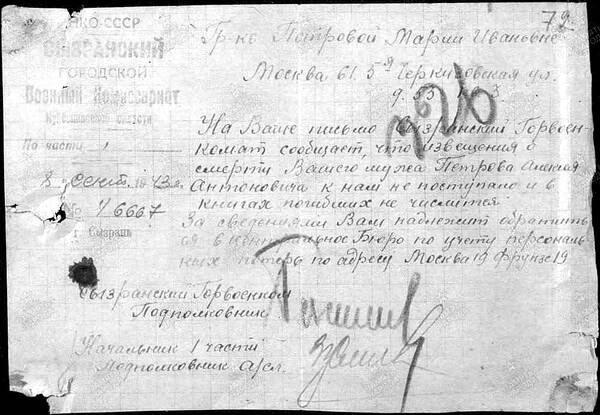 72
НКО-СССР
СЫЗРАНСКИЙ
ГОРОДСКОЙ
Военный Комиссариат
Куйбышевской области
По части 1
8 сент. 1943 г.
№ 16667
г. Сызрань
Гр-ке Петровой Марии Ивановне
Москва 61. 5я Черкизовская ул.
д. 53
На Ваше письмо Сызранский Горвоен-
комат сообщает, что извещения о
смерти Вашего мужа Петрова Алексея
Антоновича к нам не поступало и в
книгах погибших не числится.
За сведениями Вам надлежит обратить-
ся в Центральное Бюро по учету персональ-
ных потерь по адресу Москва 19 Фрунзе 19
Сызранский Горвоенком
Подполковник
Начальник 1 части
Подполковник а/сл.